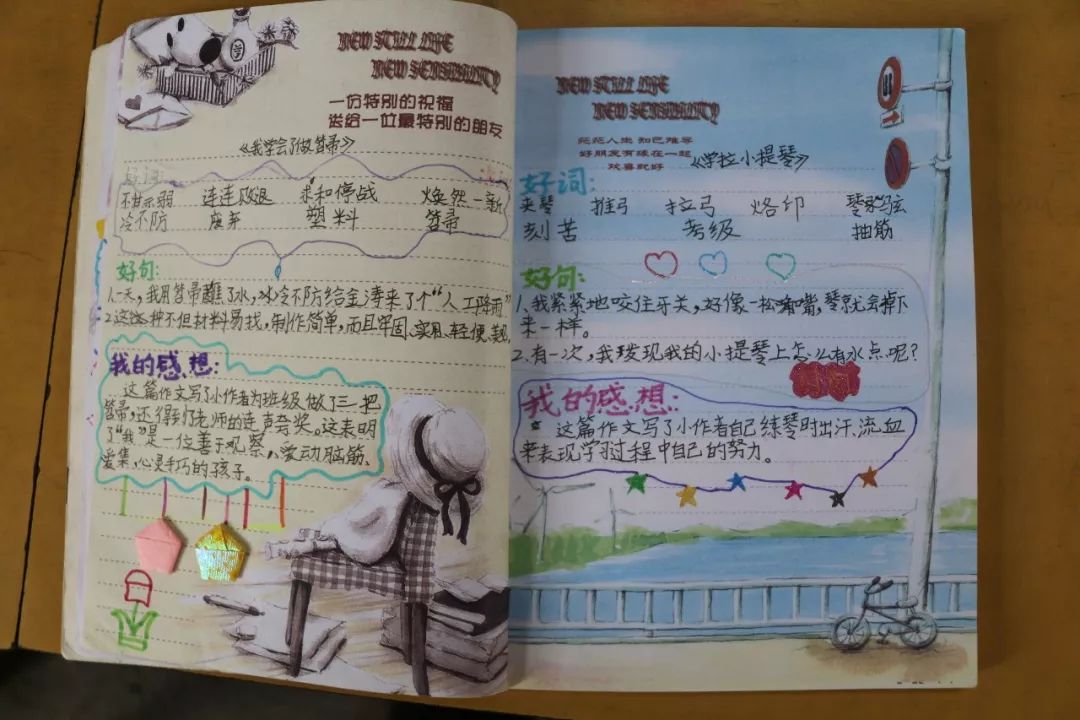 NEW STILL LIFE
NEW SENSIBILITY
一份特别的祝福
送给一位最特别的朋友
《我学会了做笤帚》
好词:
不甘示弱 连连败退 求和停战 焕然一新
冷不防 废弃 塑料 笤帚
好句:
1、一天,我用笤帚蘸了水,冰冷不防给金涛来了个“人工降雨”
2.这 种不但材料易找,制作简单,而且牢固、实用、轻便、美观
我的感想:
这篇作文写了小作者为班级做了三把
笤帚,还得到老师的连声夸奖。这表明
了“我”是一位善于观察、爱动脑筋、
爱集、心灵手巧的孩子。
NEW STILL LIFE
NEW SENSIBILITY
茫茫人生 知己难寻
好朋友有缘在一起
欢喜就好
《学拉小提琴》
好词:
夹琴 推弓 拉弓 烙印 琴弦
刻苦 考级 抽筋
好句:
1、我紧紧地咬住牙关,好像一松嘴,琴就会掉下
来一样。
2.有一次,我发现我的小提琴上怎么有水点呢?
我的感想:
这篇作文写了小作者自己练琴时出汗、流血
来表现学习过程中自己的努力。